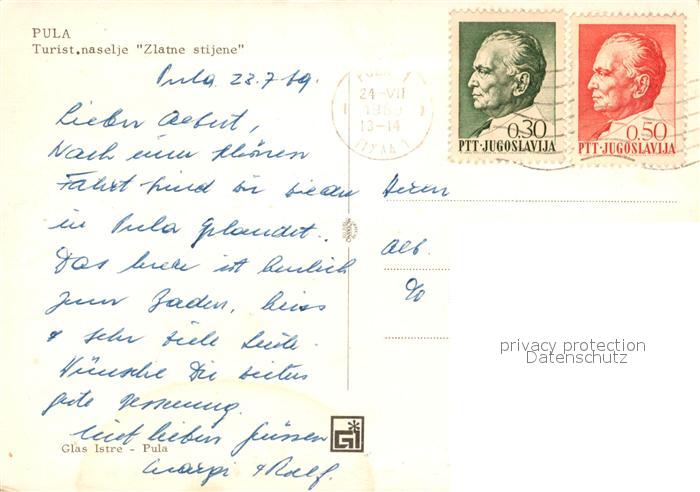 PULA
Turist.naselje "Zlatne stijene"
Pula 23.7.69.
Lieber Albert,
Nach einer schönen
Fahrt sind wir wieder
in Pula gelandet.
Das Meer ist herrlich
zum Baden, heiss
& sehr viele Leute.
Wünsche Dir weiter
gute Besserung.
Mit lieben Grüssen
Margi & Rolf.
Glas Istre - Pula
24-VII
13-14
0,30
PTT·JUGOSLAVIJA
0,50
PTT·JUGOSLAVIJA
Herrn
Alb.
%
privacy protection
Datenschutz